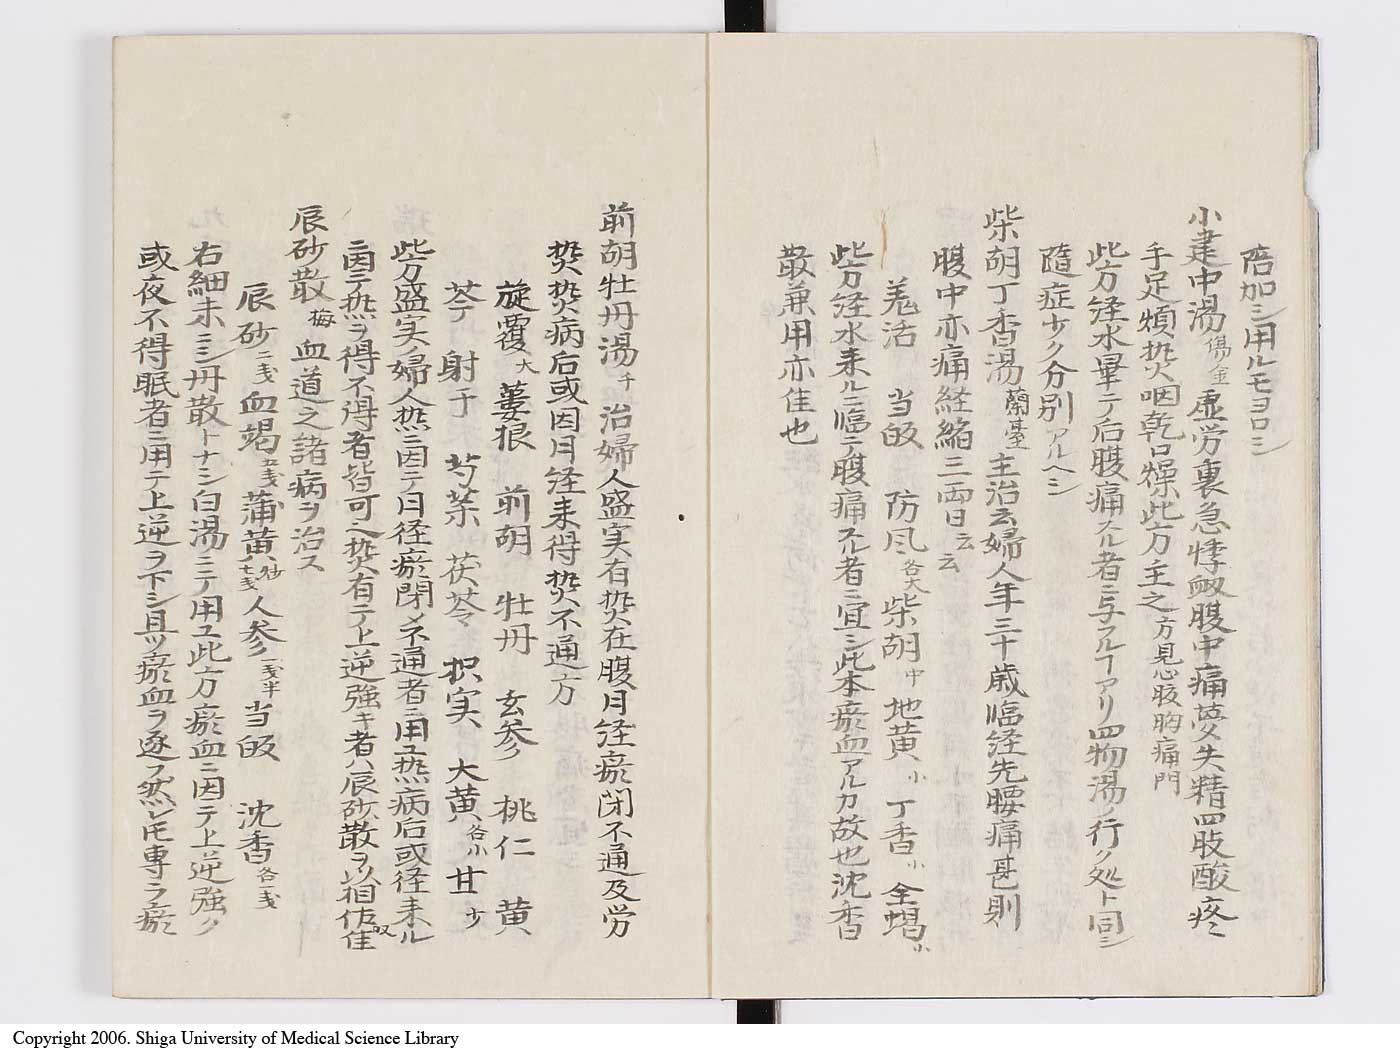 陪加シ用ルモヨロシ
小建中湯 傷金 虚労裏急悸衂腹中痛夢失精四肢酸疼
手足煩熱咽乾口燥此方主之 方見心腹胸痛門
此方経水畢テ后腹痛スル者ニ与フルヿアリ四物湯ノ行ク処ト同シ
随症少ク分別アルヘシ
柴胡丁香湯 蘭臺 主治云婦人年三十歳臨経先腰痛甚則
腹中亦痛経縮三両日云云
羗活 当皈 防風各大柴胡中 地黄小 丁香小 全蝎小
此方経水来ルニ臨テ腹痛スル者ニ宜シ此本瘀血アルカ故也沈香
散兼用亦佳也
前胡牡丹湯千 治婦人盛実有熱在腹月経瘀閉不通及労
熱熱病后或因月経来得熱不通方
旋覆大 蔞根 前胡 牡丹 玄参 桃仁 黄
芩 射干 芍薬 茯苓 枳実 大黄各小 甘少
此方盛実婦人熱ニ因テ月径瘀閉〆不通者ニ用ユ熱病后或径来ル
ニ因テ熱ヲ得不得者皆可之熱有テ上逆強キ者ハ辰砂散ヲ以相佐佳
辰砂散 梅 血道之諸病ヲ治ス
辰砂二戔血竭五戔蒲黄炒七戔人参一戔半 当皈 沈香各一戔
右細末ニシ丹散トナシ白湯ニテ用ユ此方瘀血ニ因テ上逆強ク
或夜不得眠者ニ用テ上逆ヲ下シ且ツ瘀血ヲ逐フ然レトモ専ラ瘀
Copyright 2006. Shiga University of Medical Science Library